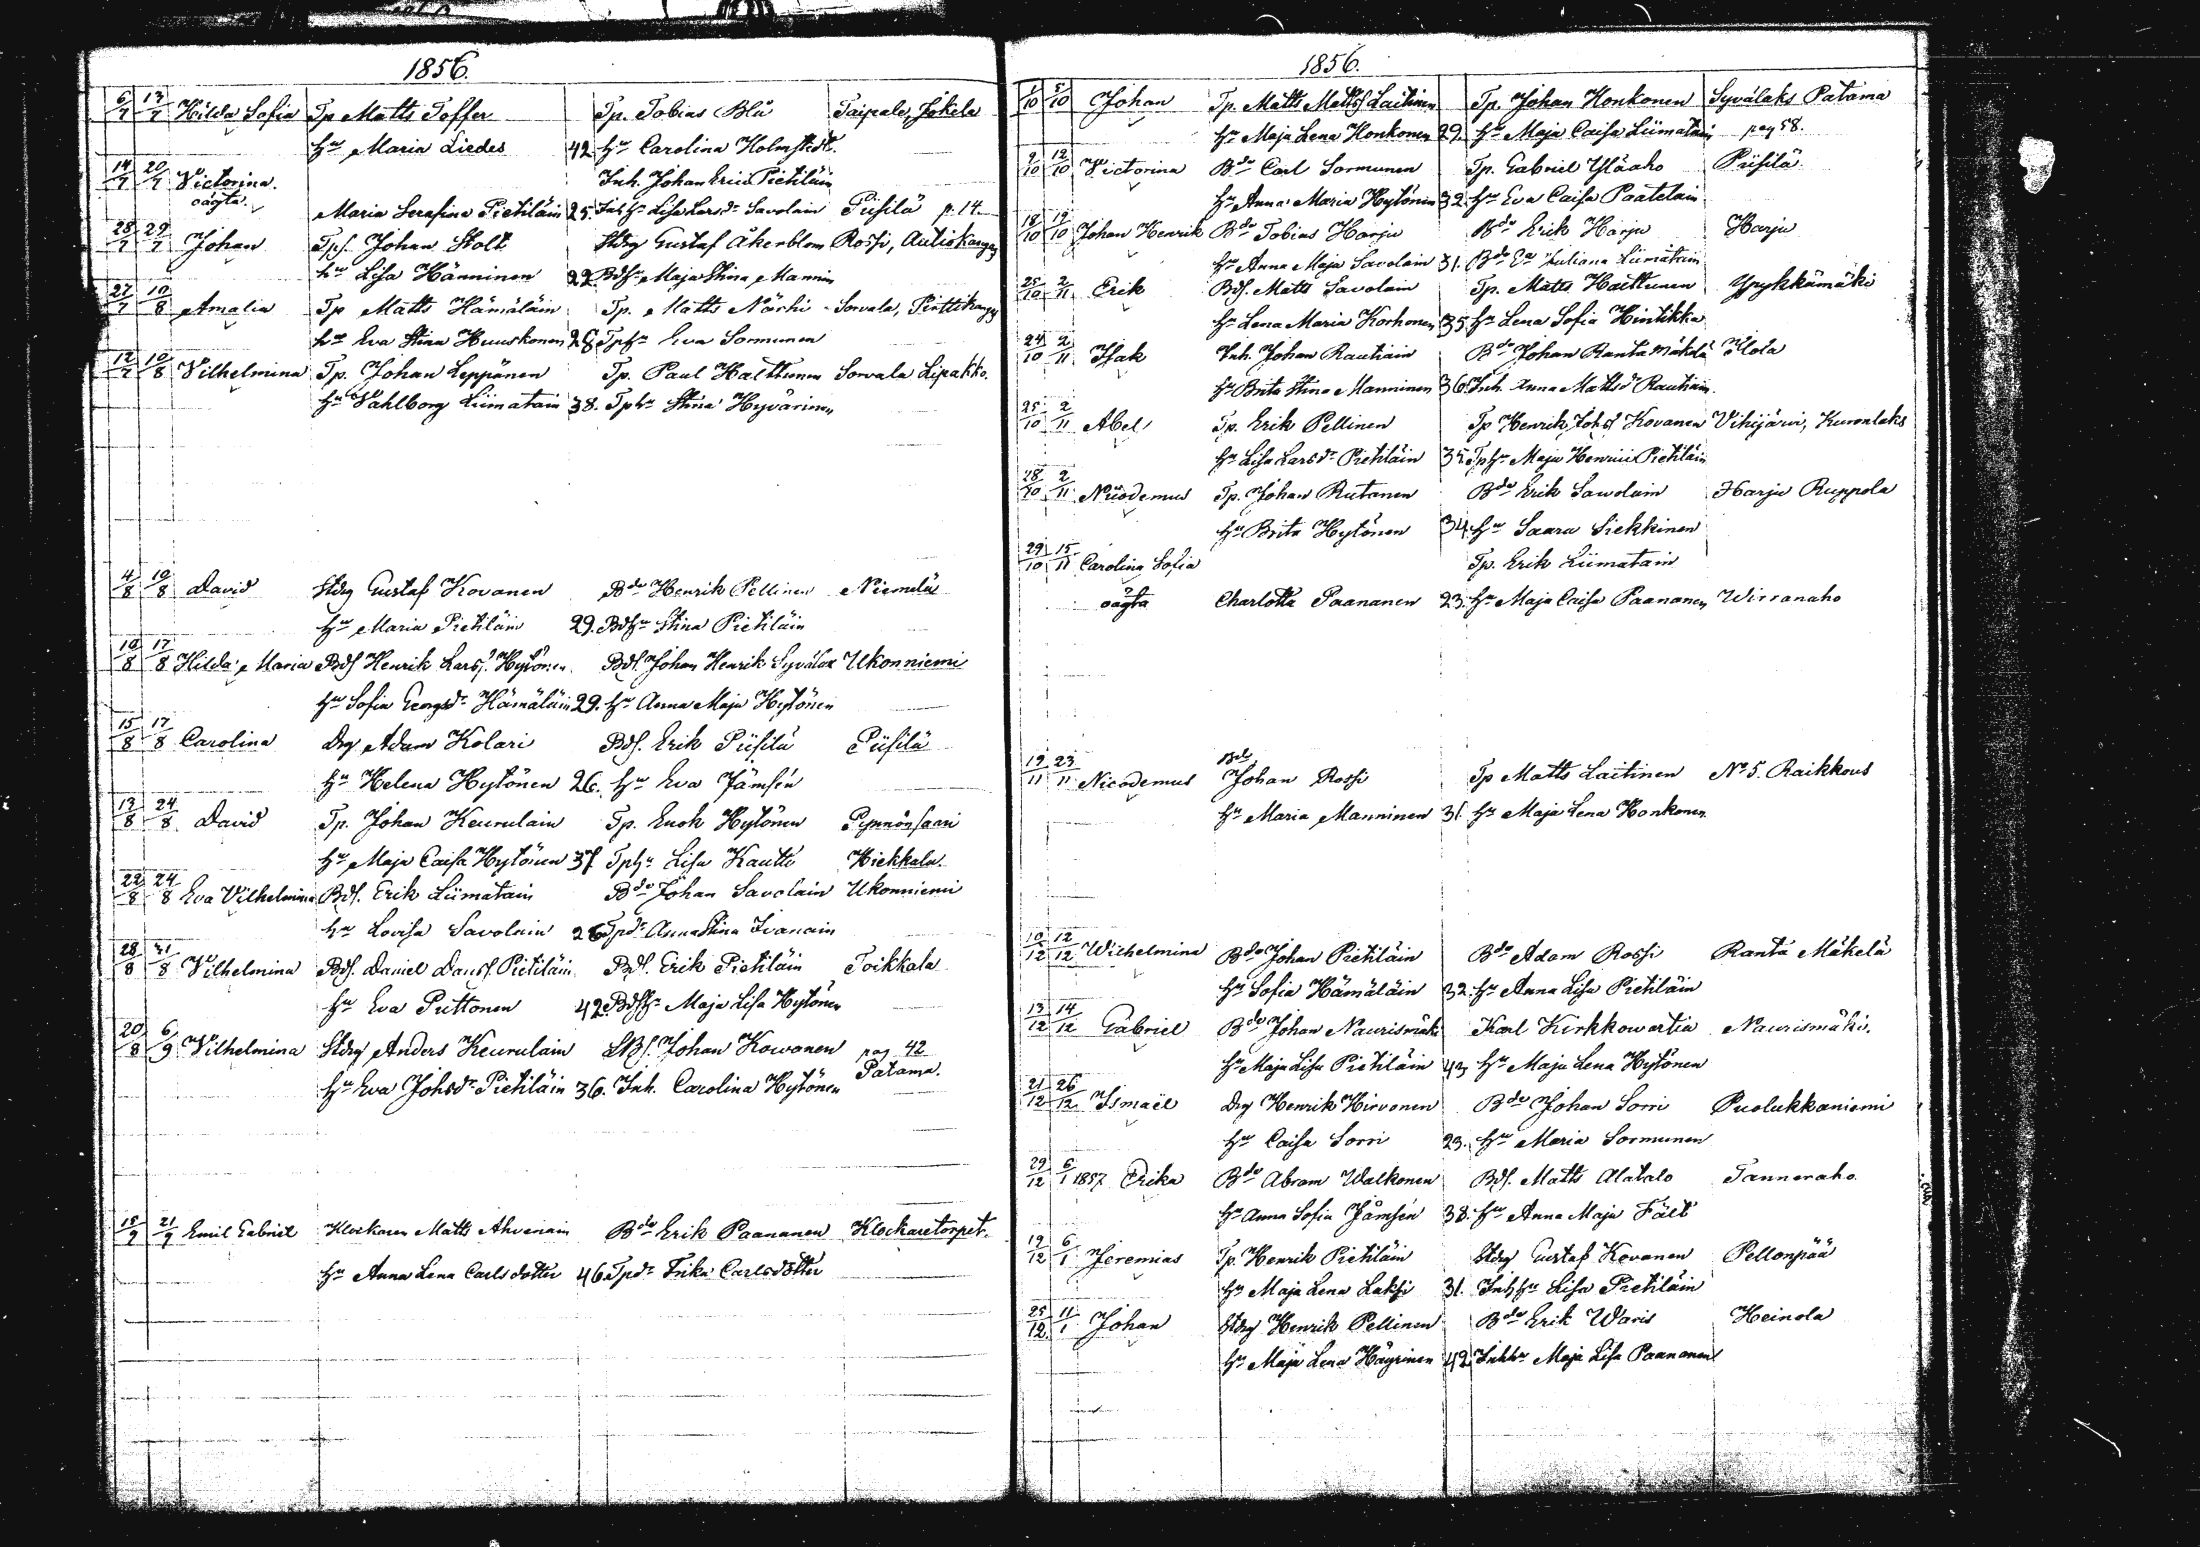 1856.
6/7 13/7 Hilda Sofia Tp Matts Toffer Tp. Tobias Blå Taipale, Jokela
hu Maria Liedes 42. hu Carolina Holmstedt.
14/7 20/7 Victorina. Inh. Johan Ericss Pietiläin
oägta. Maria Serafina Pietiläin 25. Inhhu Lisa Larsdr Savolain Piisilä p. 14
28/7 29/7 Johan Tps. Johan Stolt Stdrg Gustaf Åkerblom Rossi, Autiokangas
hu Lisa Hänninen 22. Bdhu Maja Stina Mannin
27/7 10/8 Amalia Tp Matts Hämäläin Tp. Matts Närhi Sorvala, Penttikangas
hu Eva Stina Huuskonen 26. Tphu Eva Sormunen
12/7 10/8 Vilhelmina Tp. Johan Leppänen Tp. Paul Halttunen Sorvala Lipakko.
hu Vahlborg Liimatain 38. Tphu Stina Hyvärinen
4/8 10/8 David Stdrg Gustaf Kovanen Bde Henrik Pellinen Niemelä
hu Maria Pietiläin 29. Bdhu Stina Pietiläin
10/8 17/8 Hilda Maria Bds Henrik Larss. Hytönen Bds. Johan Henrik Syvälax Ukonniemi
hu Sofia Georgsdr Hämäläin 29. hu Anna Maja Hytönen
15/8 17/8 Carolina Drg Adam Kolari Bds. Erik Piisilä Piisilä
hu Helena Hytönen 26. hu Eva Jämsén
13/8 24/8 David Tp. Johan Keurulain Tp. Enok Hytönen Pynnönsaari
hu Maja Caisa Hytönen 37. Tphu Lisa Kautto Hiekkala.
22/8 24/8 Eva Vilhelmina Bds. Erik Liimatain Bde Johan Savolain Ukonniemi
hu Lovisa Savolain 26 Tpdr Anna Stina Ivanain
28/8 31/8 Vilhelmina Bds. Daniel Danss. Pietiläin Bds. Erik Pietiläin Toikkala
hu Eva Puttonen 42. Bdshu Maja Lisa Hytönen
20/8 6/9 Vilhelmina Stdrg Anders Keurulain Bs. Johan Kowonen pag 42
hu Eva Johsdr Pietiläin 36. Inh. Carolina Hytönen Patama.
15/9 21/9 Emil Gabriel Klockaren Matts Ahvenain Bde Erik Paananen Klockaretorpet.
hu Anna Lena Carlsdotter 46. Tpdr Erika Carlsdotter
1856.
1/10 5/10 Johan Tp. Matts Mattss Laitinen Tp. Johan Honkonen Syvälaks Patama
hu Maja Lena Honkonen 29. hu Maja Caisa Liimatain pag 58.
9/10 12/10 Victorina Bde Carl Sormunen Tp. Gabriel Yläaho Piisilä
hu Anna Maria Hytönen 32. hu Eva Caisa Paatelain
18/10 19/10 Johan Henrik Bde Tobias Harju Bde Erik Harju Harju
hu Anna Maja Savolain 31. Juliana Liimatain
25/10 2/11 Erik Bds. Matts Savolain Tp. Matts Halttunen Yrykkämäki
hu Lena Maria Korhonen 35. hu Lena Sofia Hintikka
24/10 2/11 Isak Inh. Johan Rautiain Bde Johan Ranta Mäkelä Ilola
hu Brita Stina Manninen 36. Inh. Anna Mattsdr Rautiain.
25/10 2/11 Abel Tp. Erik Pellinen Tp Henrik Johss Kovanen Vihijärvi, Kuronlaks
hu Lisa Larsdr Pietiläin 35. Tphu Maja Henricsdr Pietiläin
28/10 2/11 Nicodemus Tp. Johan Rutanen Bde Erik Sawolain Harju Ruppola
hu Brita Hytönen 34. hu Saara Siekkinen
29/10 15/11 Carolina Sofia Tp. Erik Liimatain
oägta Charlotta Paananen 23. hu Maja Caisa Paananen Wirranaho
19/11 23/11 Nicodemus Bds Johan Rossi Tp Matts Laitinen No 5. Raikkous
hu Maria Manninen 31. hu Maja Lena Honkonen.
10/12 12/12 Wilhelmina Bde Johan Pietiläin Bde Adam Rossi Ranta Mäkelä
hu Sofia Hämäläin 32. hu Anna Lisa Pietiläin
13/12 14/12 Gabriel Bde Johan Naurismäki Karl Kirkkowartia Naurismäki.
hu Maja Lisa Pietiläin 43. hu Maja Lena Hytönen
21/12 26/12 Ismaël Drg Henrik Hirvonen Bde Johan Sorri Puolukkaniemi
hu Caisa Sorri 23. hu Maria Sormunen
29/12 6/1 1857 Erika Bde Abram Walkonen Bds. Matts Alatalo Tanneraho.
hu Anna Sofia Jämsén 38. hu Anna Maja Fält
19/12 6/1 Jeremias Tp. Henrik Pietiläin Stdrg Gustaf Kovanen Pellonpää
hu Maja Lena Laksi 31. Inhhu Lisa Pietiläin
25/12 11/1 Johan Stdrg Henrik Pellinen Bde Erik Waris Heinola
hu Maja Lena Häyrinen 42. Inhhu Maja Lisa Paananen